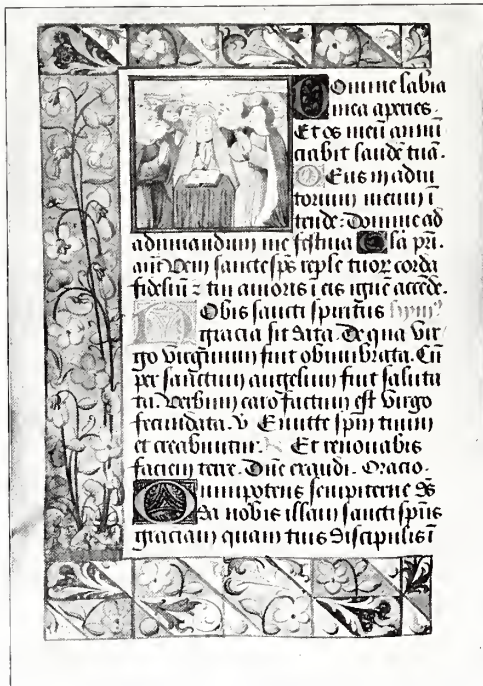 Domine labia
mea aperies.
Et os meū annū
ciabit laudē tuā.
Deus in adiu
torium meum ī
tende: Domine ad
adiuuandum me festina Gła pr̄i.
añ Veni sancte sp̄s reple tuor̄ corda
fideliū ⁊ tui amoris ī eis ignē accēde.
Nobis sancti spiritus hymꝰ
gracia sit data. De qua vir
go virginum fuit obumbrata. Cū
per sanctum angelum fuit saluta
ta. Verbum caro factum est virgo
fecundata. v̄ Emitte spm̄ tuum
et creabuntur. Et renouabis
faciem terre. Dn̄e exaudi. Oracio.
Omnipotens sempiterne ds̄
da nobis illam sancti sp̄us
graciam quam tuis discipulis ī